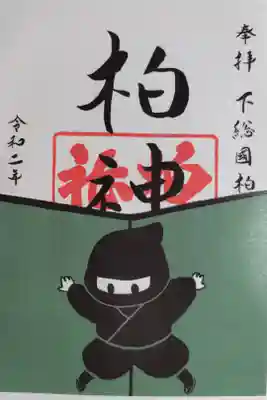 奉拝 下総國柏
柏神
令和二年